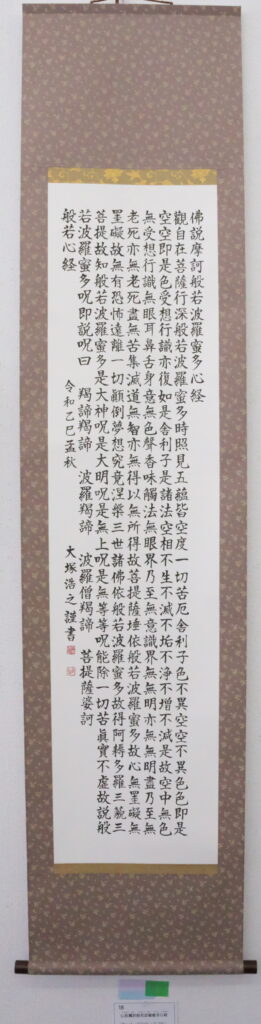 佛說摩訶般若波羅蜜多心経
觀自在菩薩行深般若波羅蜜多時照見五蘊皆空度一切苦厄舍利子色不異空空不異色色即是
空空即是色受想行識亦復如是舍利子是諸法空相不生不滅不垢不浄不增不減是故空中無色
無受想行識無眼耳鼻舌身意無色聲香味觸法無眼界乃至無意識界無無明亦無無明盡乃至無
老死亦無老死盡無苦集滅道無智亦無得以無所得故菩提薩埵依般若波羅蜜多故心無罣礙無
罣礙故無有恐怖遠離一切顛倒夢想究竟涅槃三世諸佛依般若波羅蜜多故得阿耨多羅三藐三
菩提故知般若波羅蜜多是大神呪是大明呪是無上呪是無等等呪能除一切苦真實不虚故說般
若波羅蜜多呪即說呪曰 羯諦羯諦 波羅羯諦 波羅僧羯諦 菩提薩婆訶
般若心経
令和乙巳孟秋 大塚浩之謹書